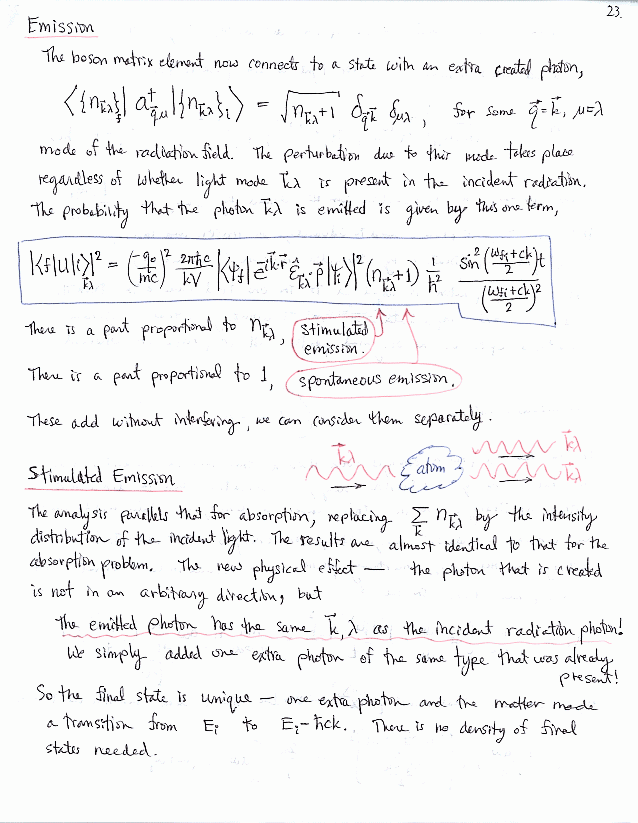 23.
Emission
The boson matrix element now connects to a state with an extra created photon,
⟨{n_k⃗λ}_f| a†_q⃗μ |{n_k⃗λ}_i⟩ = √(n_k⃗λ+1) δ_q⃗k⃗ δ_μλ , for some q⃗=k⃗, μ=λ
mode of the radiation field. The perturbation due to this mode takes place
regardless of whether light mode k⃗λ is present in the incident radiation.
The probability that the photon k⃗λ is emitted is given by this one term,
|⟨f|U|i⟩|²_k⃗λ = (-q₀/mc)² 2πħc/kV |⟨ψ_f| e^{-ik⃗·r⃗} ε̂_k⃗λ·p⃗ |ψ_i⟩|² (n_k⃗λ+1) 1/ħ² sin²((ω_fi+ck)/2)t / ((ω_fi+ck)/2)²
There is a part proportional to n_k⃗λ, stimulated
emission.
There is a part proportional to 1, spontaneous emission.
These add without interfering, we can consider them separately.
k⃗λ atom k⃗λ
k⃗λ
Stimulated Emission
The analysis parallels that for absorption, replacing Σ_k⃗ n_k⃗λ by the intensity
distribution of the incident light. The results are almost identical to that for the
absorption problem. The new physical effect — the photon that is created
is not in an arbitrary direction, but
The emitted photon has the same k⃗,λ as the incident radiation photon!
We simply added one extra photon of the same type that was already
present!
So the final state is unique — one extra photon and the matter made
a transition from E_i to E_i-ħck. There is no density of final
states needed.